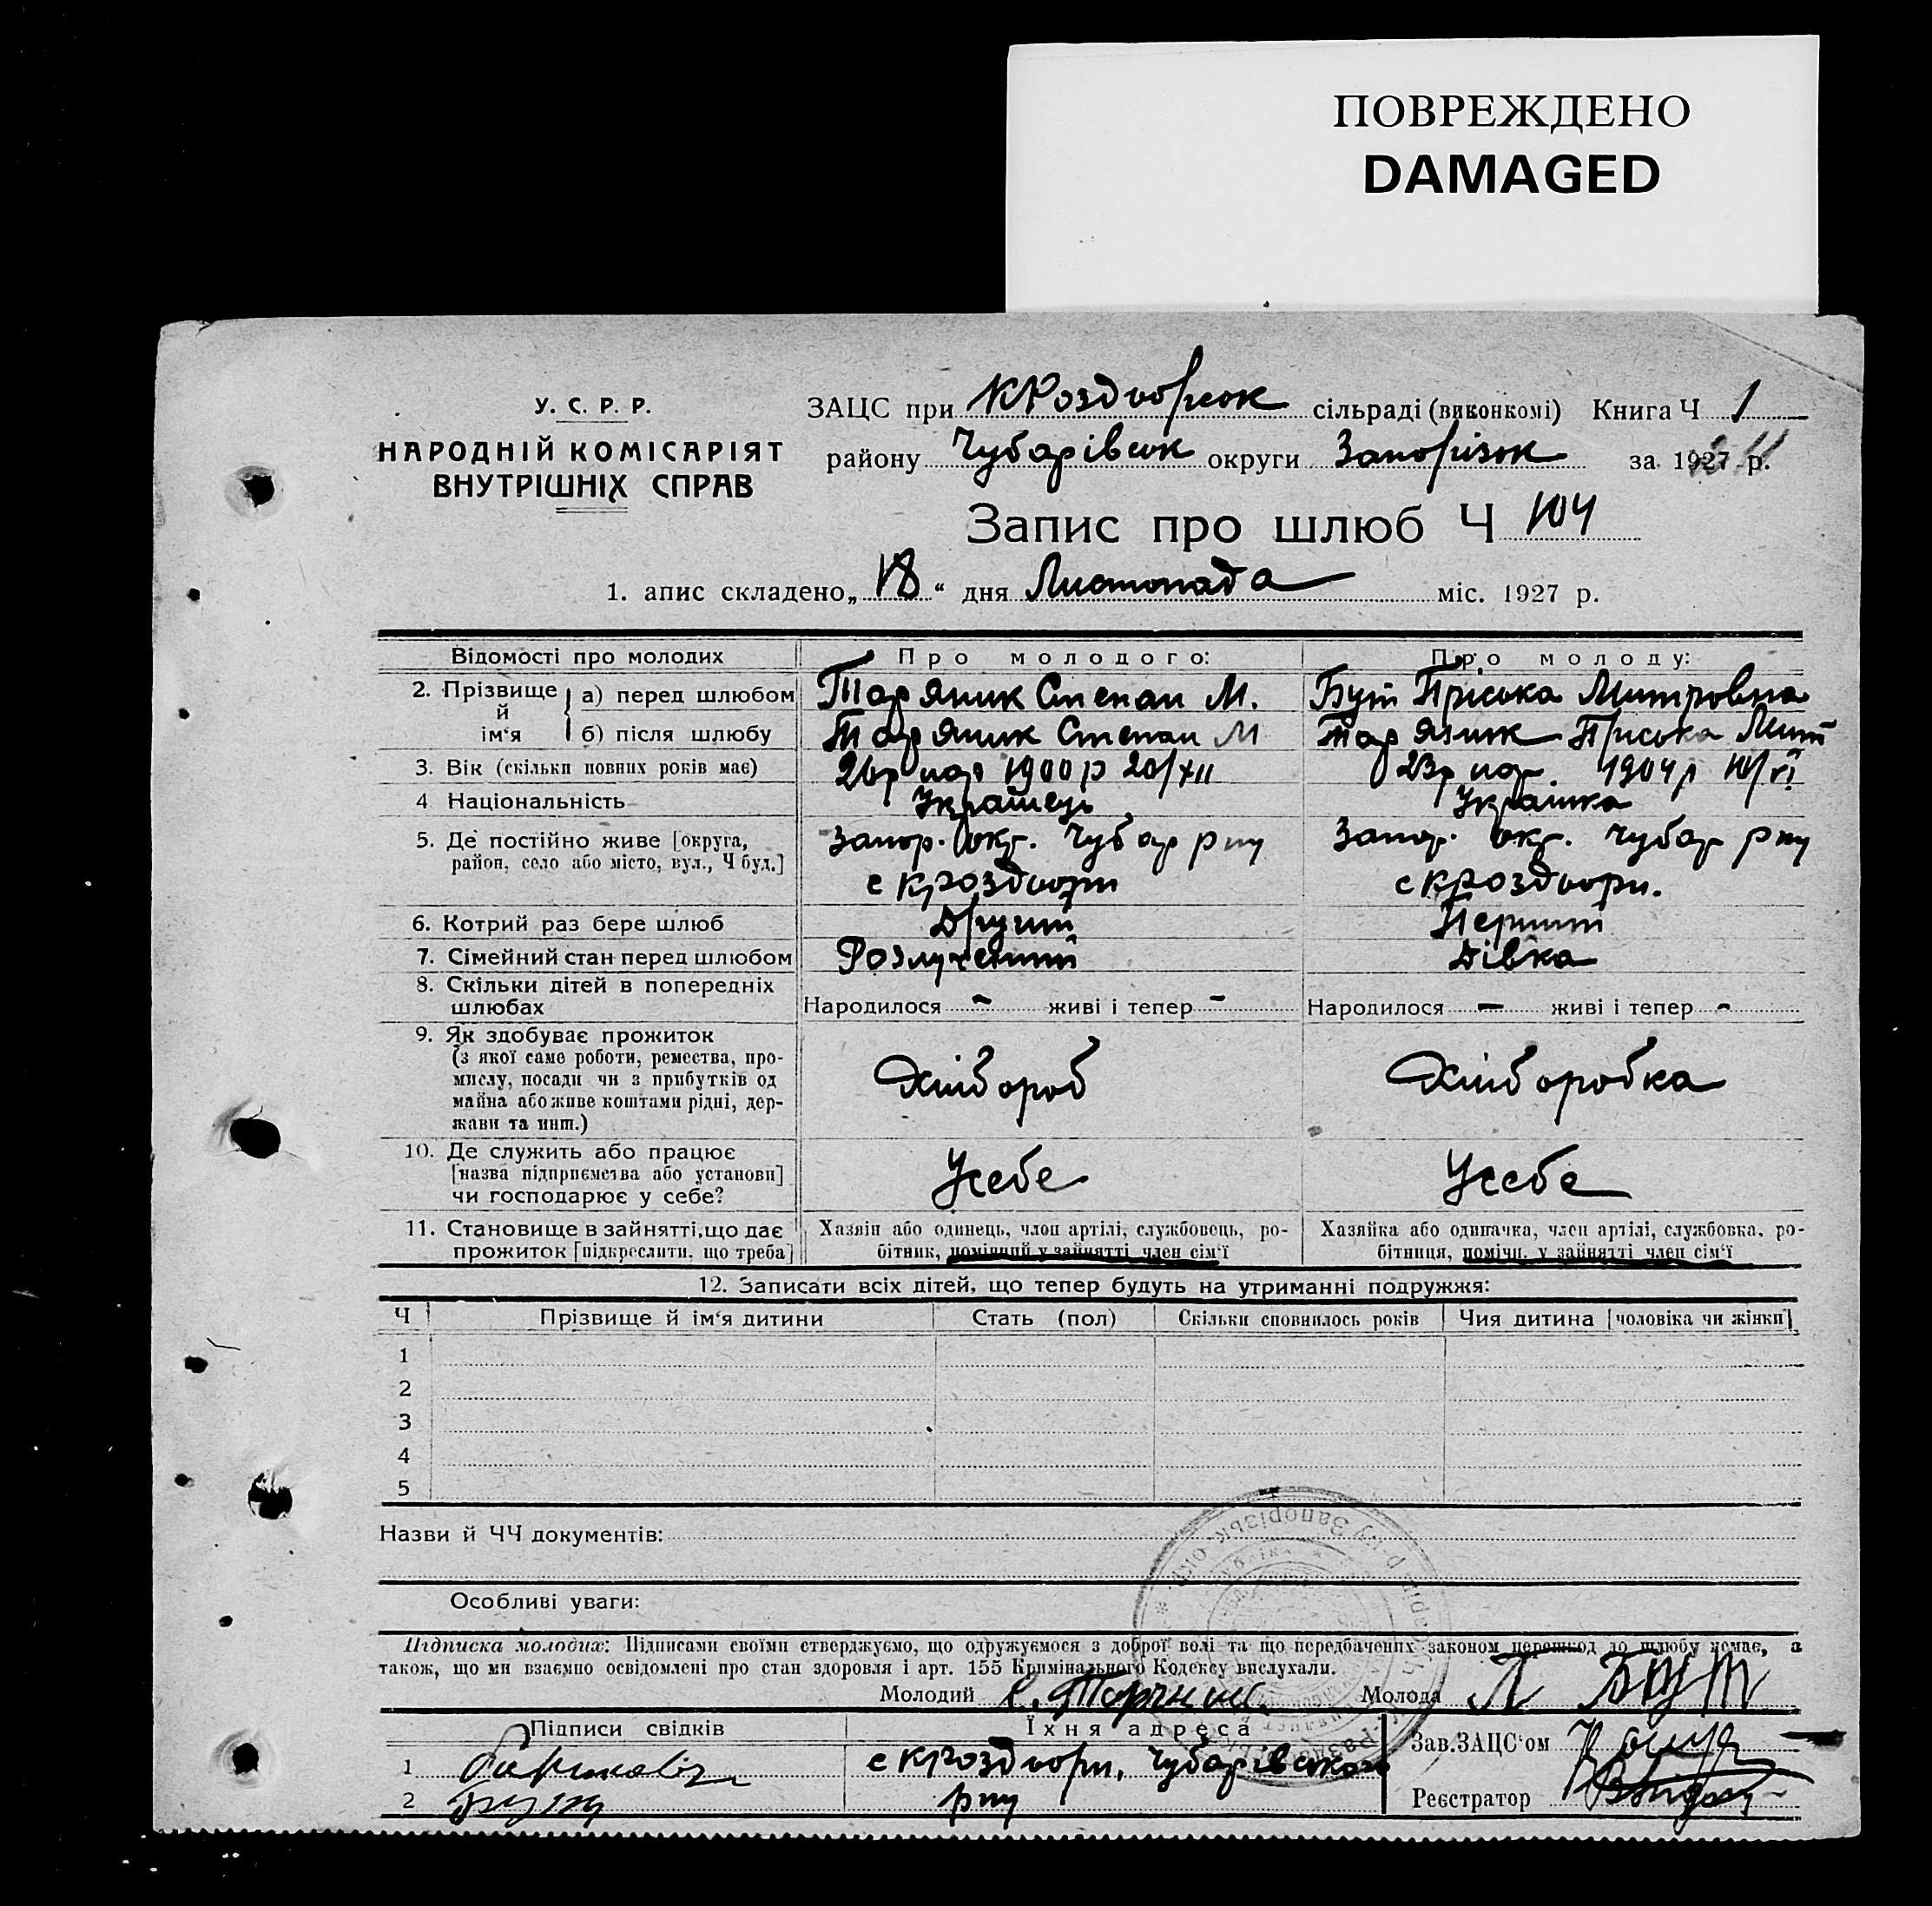 ПОВРЕЖДЕНО
DAMAGED
У. С. Р. Р.
НАРОДНІЙ КОМІСАРІЯТ
ВНУТРІШНІХ СПРАВ
ЗАЦС при КРоздворськ сільраді (виконкомі) Книга Ч 1
району Чубарівськ округи Запорізьк за 1927 р.
Запис про шлюб Ч 104
1. апис складено „18“ дня Листопада міс. 1927 р.
Відомості про молодих Про молодого: Про молоду:
2. Прізвище й ім‘я а) перед шлюбом Таряник Степан М. Бут Пріська Митровна
б) після шлюбу Таряник Степан М Таряник Пріська Мит
3. Вік (скільки повних років має) 26р нар 1900р 20/XII 23р нар. 1904р 10/VI
4 Національність Українець Українка
5. Де постійно живе [округа, район, село або місто, вул., Ч буд.] Запор. окр. Чубар рну Запор. окр. Чубар рну
с Кроздвори с Кроздвори.
6. Котрий раз бере шлюб Другий Перший
7. Сімейний стан перед шлюбом Розлучений Дівка
8. Скільки дітей в попередніх шлюбах Народилося - живі і тепер - Народилося - живі і тепер -
9. Як здобуває прожиток
(з якої саме роботи, ремества, про-
мислу, посади чи з прибутків од
майна або живе коштами рідні, дер-
жави та инш.) Хлібороб Хліборобка
10. Де служить або працює
[назва підприємства або установи]
чи господарює у себе? Усебе Усебе
11. Становище в зайнятті, що дає Хазяїн або одинець, член артілі, службовець, ро- Хазяйка або одиначка, член артілі, службовка, ро-
прожиток [підкреслити, що треба] бітник, помічний у зайнятті член сім‘ї бітниця, помічн. у зайнятті член сім‘ї
12. Записати всіх дітей, що тепер будуть на утриманні подружжя:
Ч Прізвище й ім‘я дитини Стать (пол) Скільки сповнилось років Чия дитина [чоловіка чи жінки]
1
2
3
4
5
Назви й ЧЧ документів:
Особливі уваги:
Підписка молодих: Підписами своїми стверджуємо, що одружуємося з доброї волі та що передбачених законом перешкод до шлюбу немає, а
також, що ми взаємно освідомлені про стан здоровля і арт. 155 Кримінального Кодексу вислухали.
Молодий С. Таряник Молода П Бут
Підписи свідків Їхня адреса Зав.ЗАЦС‘ом
1 с Кроздвори, Чубарівського
2 рну Реєстратор